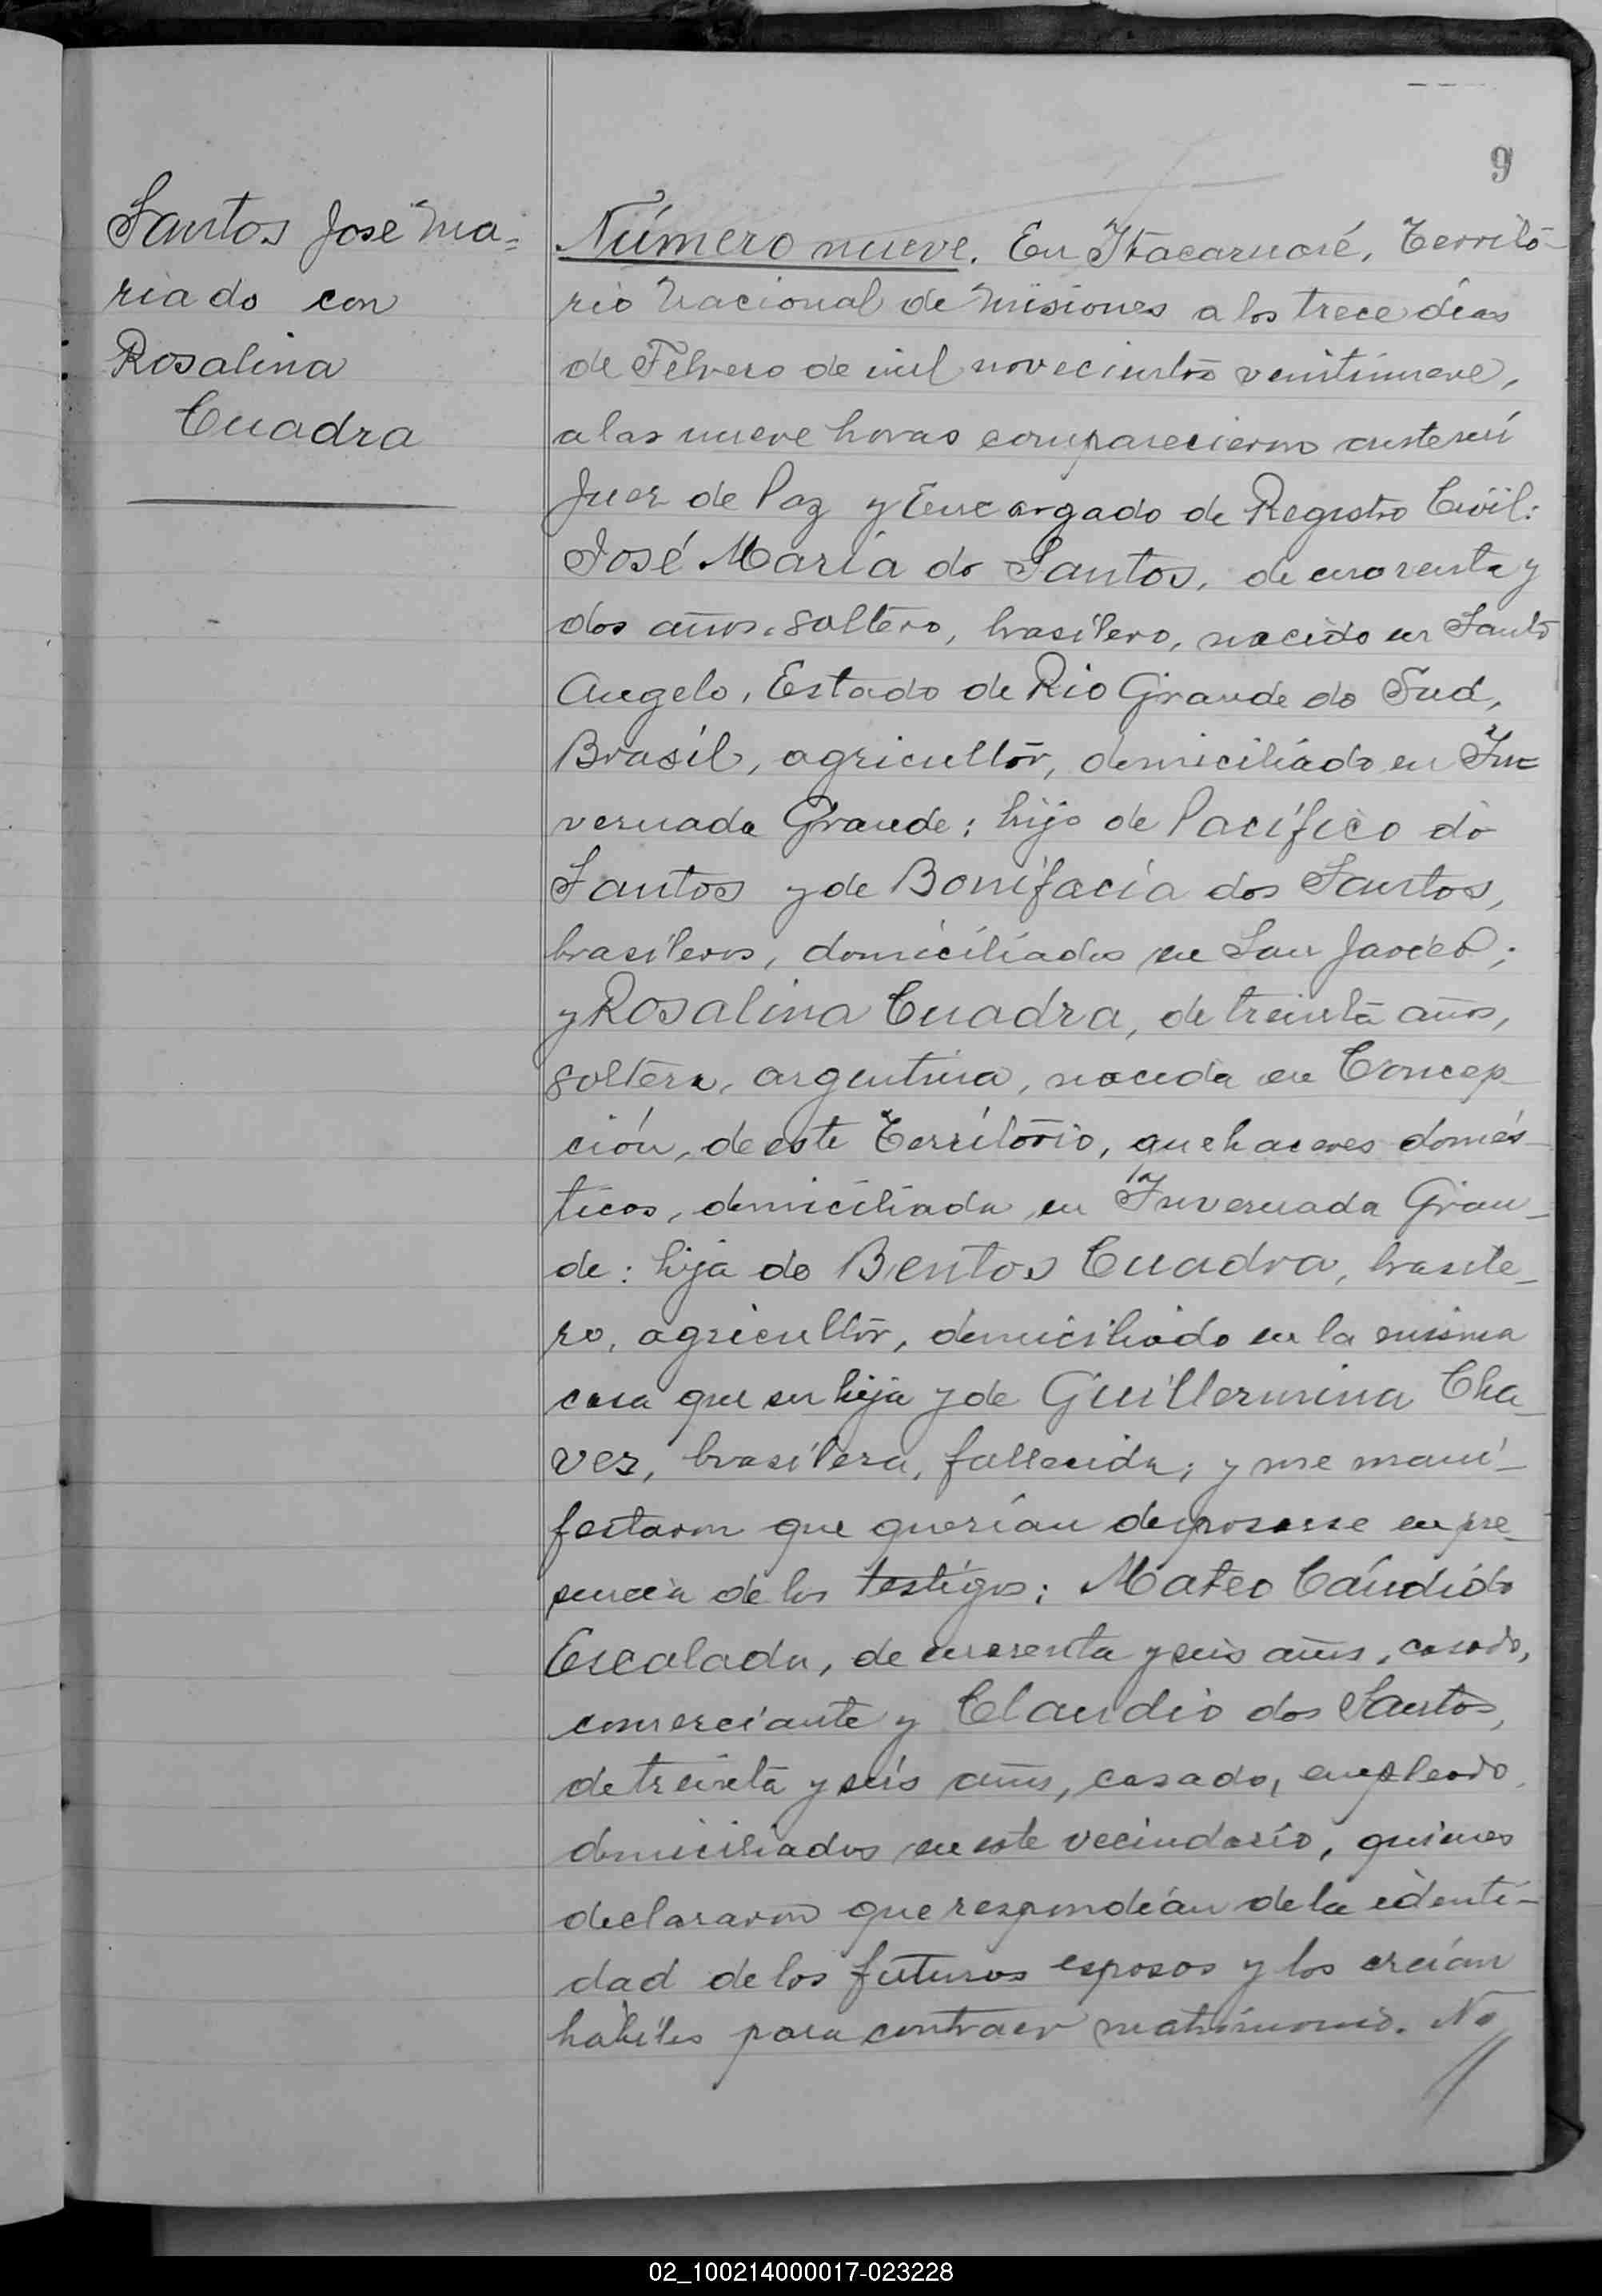 9
Santos José Ma=
ria do con
Rosalina
Cuadra
Número nueve. En Itacaruaré, Territo-
rio Nacional de Misiones a los trece días
de Febrero de mil novecientos veintinueve,
a las nueve horas comparecieron ante mí
Juez de Paz y Encargado de Registro Civil:
José María do Santos, de cuarenta y
dos años, soltero, brasilero, nacido en Santo
Angelo, Estado de Rio Grande do Sud,
Brasil, agricultor, domiciliado en In=
vernada Grande; hijo de Pacífico do
Santos y de Bonifacia dos Santos,
brasileros, domiciliados en San Javier;
y Rosalina Cuadra, de treinta años,
soltera, argentina, nacida en Concep-
ción, de este Territorio, quehaceres domés-
ticos, domiciliada en Invernada Gran-
de: hija de Bentos Cuadra, brasile-
ro, agricultor, domiciliado en la misma
casa que su hija y de Guillermina Cha-
vez, brasilera, fallecida; y me mani-
festaron que querían desposarse en pre-
sencia de los testigos: Mateo Cándido
Escalada, de cuarenta y seis años, casado,
comerciante y Claudio dos Santos,
de treinta y seis años, casado, empleado,
domiciliados en este vecindario, quienes
declararon que respondían de la identi-
dad de los futuros esposos y los creían
hábiles para contraer matrimonio. No
//
02_100214000017-023228